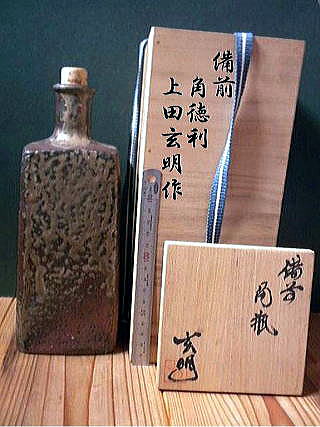 備前
角徳利
上田玄明作
備前
角瓶
玄明